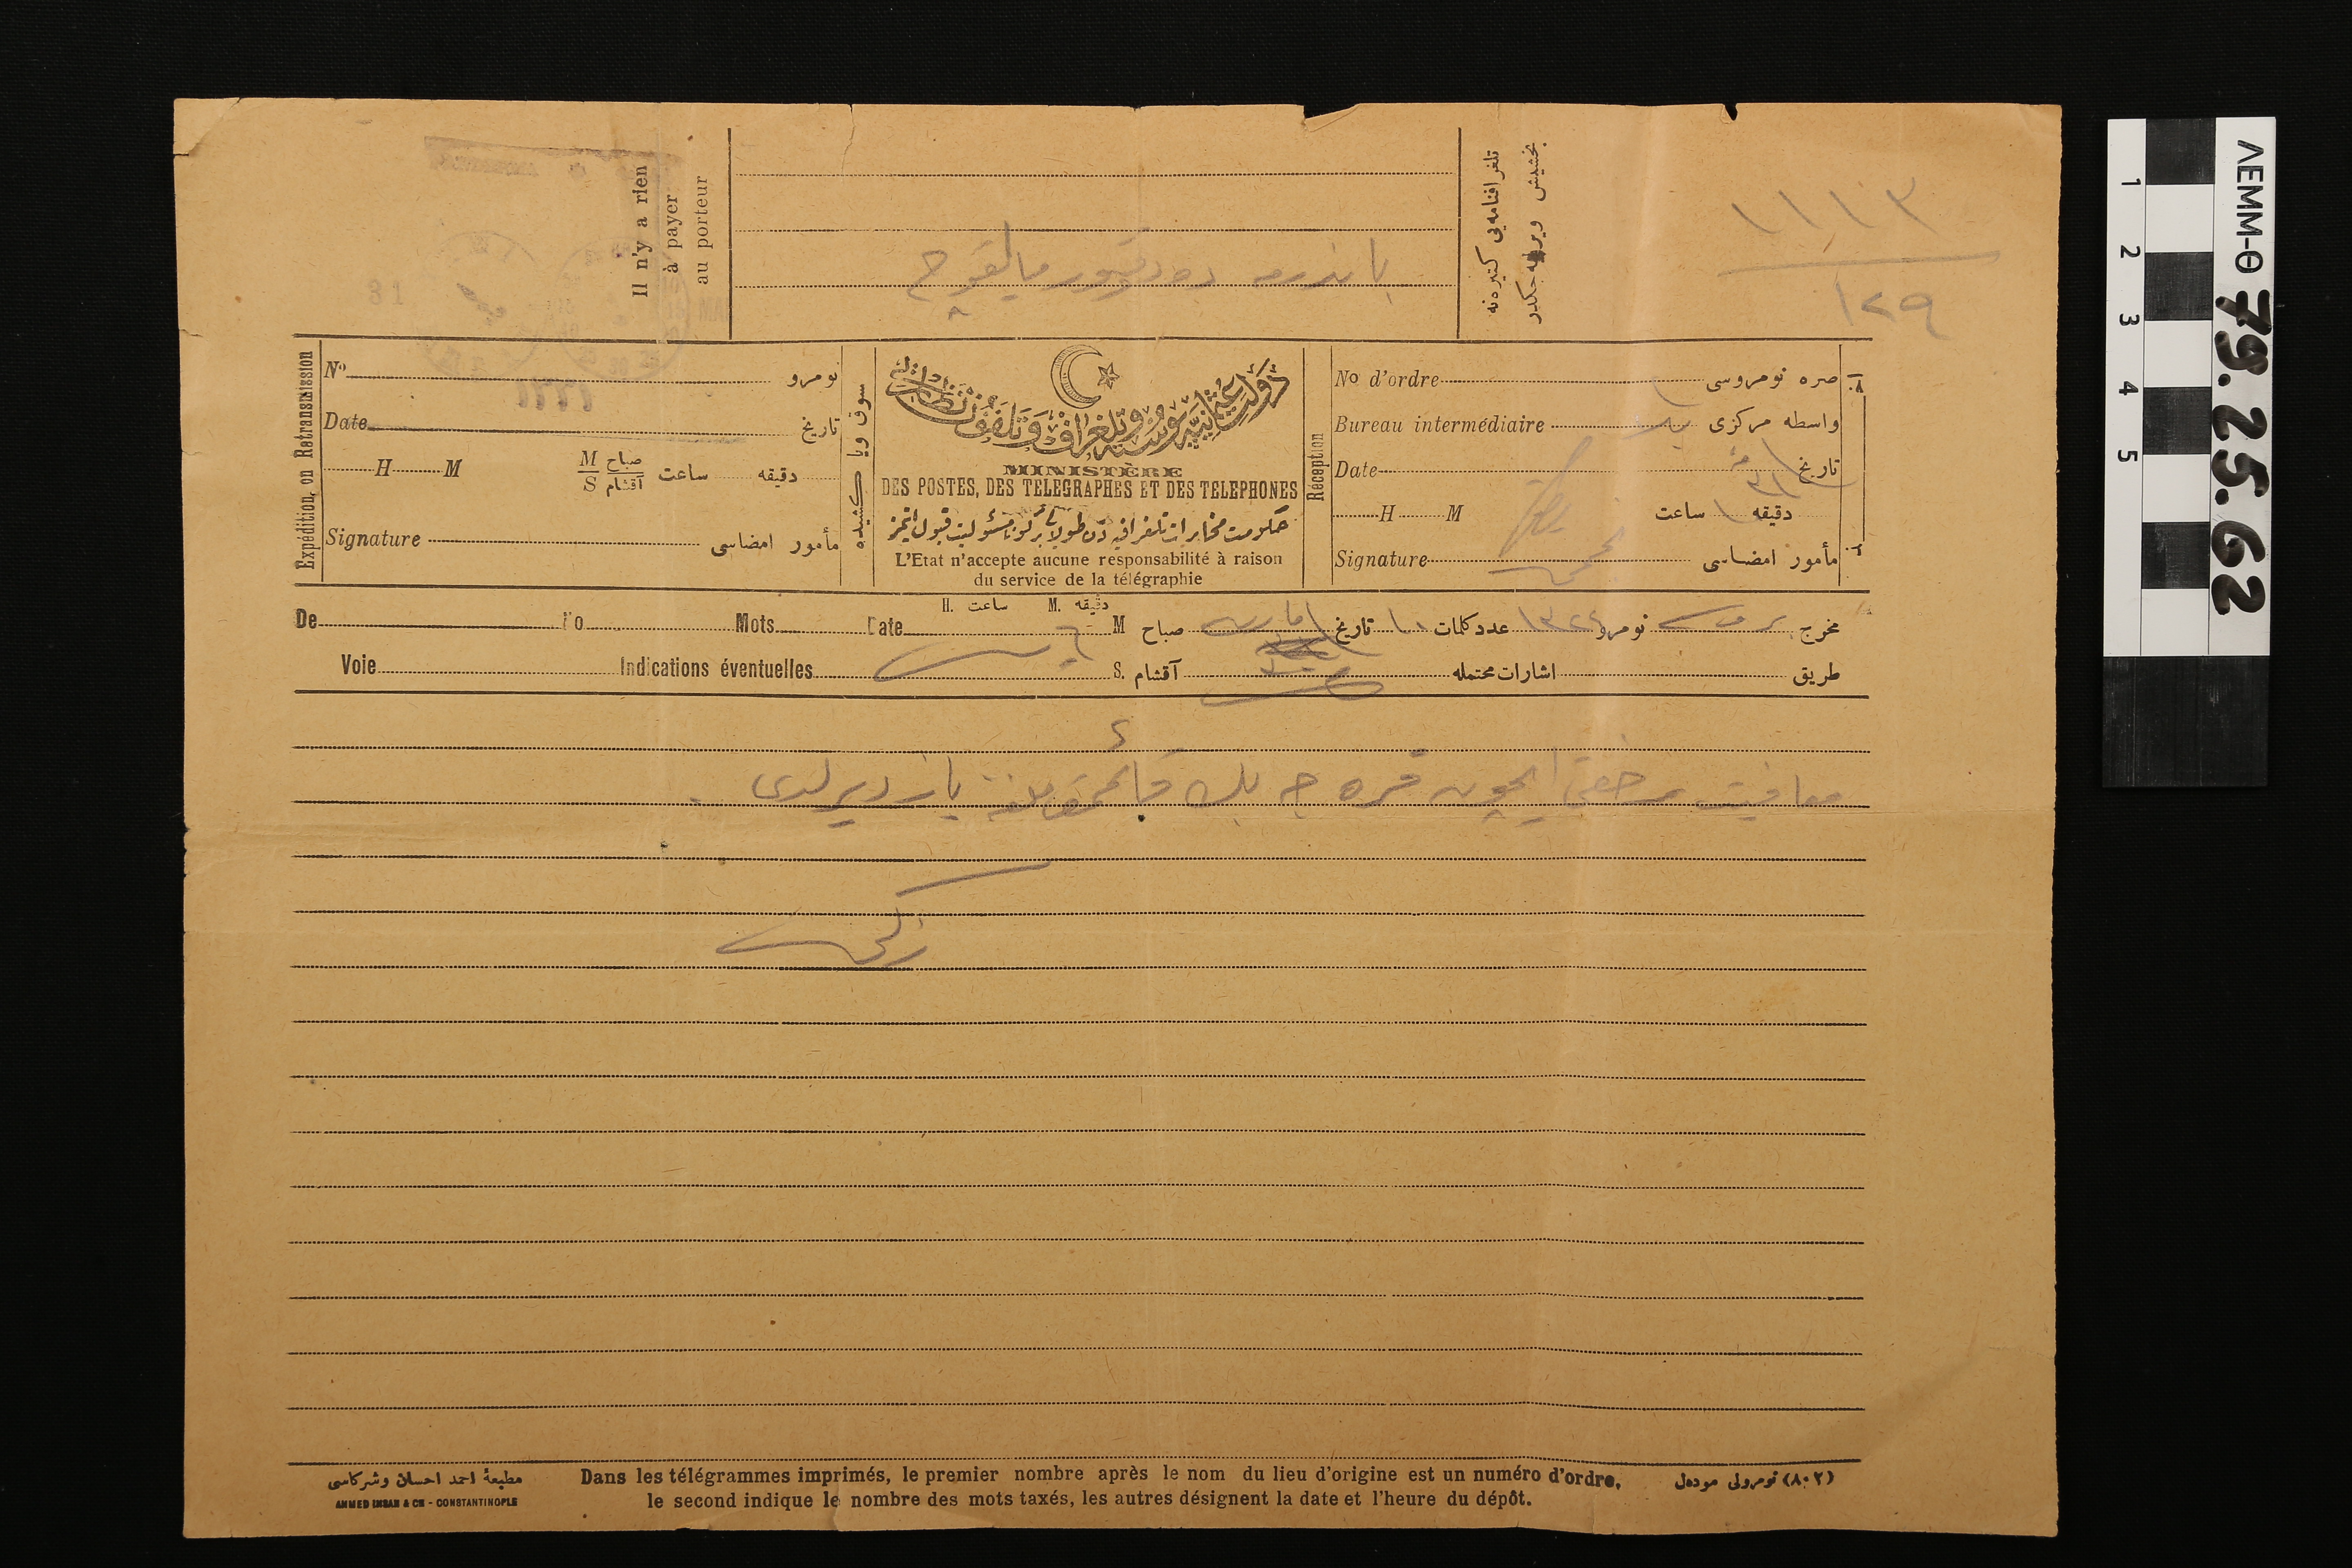 Il n'y a rien
à payer
au porteur
باندرمه ده دوقتور ميالقوج
تلغرافنامه‌يى كتيره‌نه
بخشيش ويرلميه‌جكدر
١١١٣
١٢٩
81
Expédition, ou Retransmission
Nº نومرو
Date تاريخ
H M M/S صباح/آقشام ساعت دقيقه
Signature مأمور امضاسى
سوق ويا كشيده
دولت عثمانيه پوسته و تلغراف و تلفون نظارتى
MINISTÈRE
DES POSTES, DES TELEGRAPHES ET DES TELEPHONES
حكومت مخابرات تلغرافيه دن طولايى بر كونا مسئوليت قبول ايتمز
L'Etat n'accepte aucune responsabilité à raison
du service de la télégraphie
Réception
Nº d'ordre صره نومروسى
Bureau intermédiaire واسطه مركزى
Date تاريخ
H M ساعت دقيقه
Signature مأمور امضاسى
H. ساعت M. دقيقه
De No Mots Date M صباح تاريخ ١٠ عدد كلمات نومرو مخرج
Voie Indications éventuelles S. آقشام اشارات محتمله طريق
معافيت ايچون قره جه بك يازديرلدى
زكى
مطبعۀ احمد احسان وشركاسى
AHMED IHSAN & CIE - CONSTANTINOPLE
Dans les télégrammes imprimés, le premier nombre après le nom du lieu d'origine est un numéro d'ordre,
le second indique le nombre des mots taxés, les autres désignent la date et l'heure du dépôt.
(٨٠٢) نومرولى موده‌ل
1 2 3 4 5
ΛΕΜΜ-Θ 79.25.62